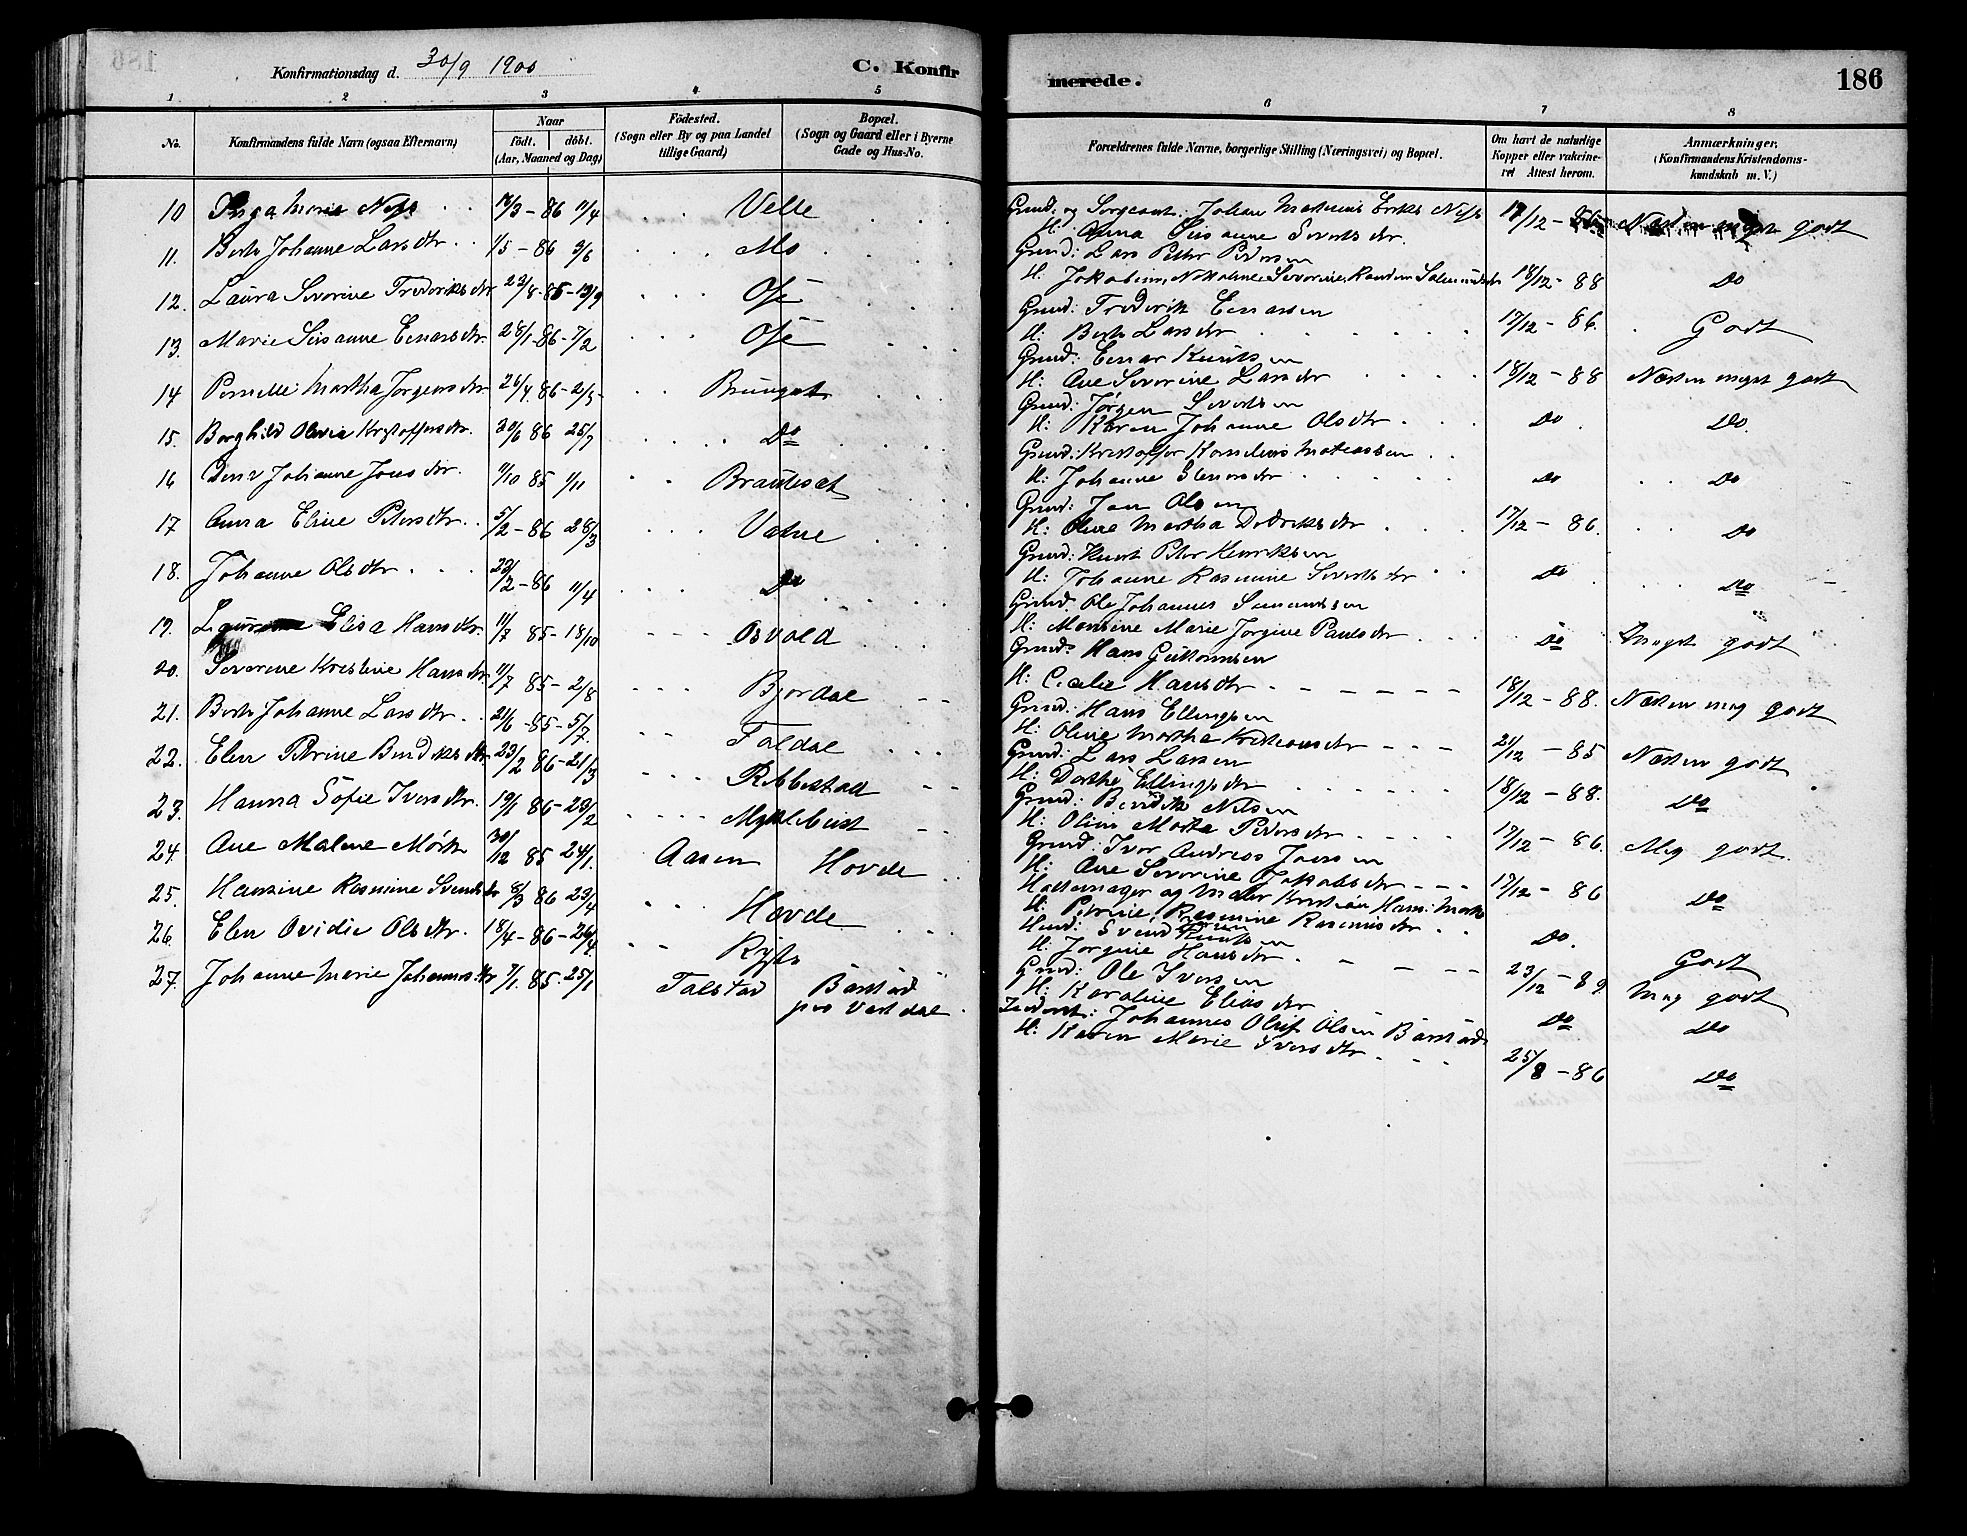 Konfirmationsdag d. 30/9 1900
C. Konfir
merede.
186
1 2 3 4 5 6 7 8
No.
Konfirmandens fulde Navn (ogsaa Efternavn)
Naar
födt. döbt.
(Aar, Maaned og Dag)
Födested.
(Sogn eller By og paa Landet
tillige Gaard)
Bopæl.
(Sogn og Gaard eller i Byerne
Gade og Hus-No.
Forældrenes fulde Navne, borgerlige Stilling (Næringsvei) og Bopæl.
Om havt de naturlige
Kopper eller vakcine-
ret Attest herom.
Anmærkninger.
(Konfirmandens Kristendoms-
kundskab m. V.)
10 Inga Marie Ness 86 11/4 Velle
Grmd. og Sergeant: Johan Martinus Eriks. Ness 17/12 - 86 Næsten meget godt
H: Anna Susanne Sivertsdtr.
11. Berte Johanne Larsdtr. 1/5 - 86 9/6 Mo
Grmd: Lars Petter Pedersen
H: Jakobine Nikoline Severine 18/12 - 88 Do
12. Laura Severine Frederiksdtr 23/8 - 85 - 13/9 Ose
Grmd: Frederik Einarsen
H: Berte Larsdtr 17/12 - 86. Godt
13. Marie Susanne Einarsdtr. 28/1 - 86 - 7/2 Ose
Grmd: Einar Knutsen
H: Ane Severine Larsdtr 18/12 - 88 Næsten meget godt
14 Pernelle Martha Jørgensdtr 26/4. 86 - 2/5 Brungot
Grmd: Jørgen Sivertsen
H: Karen Johanne Olsdtr Do Do.
15. Borghild Olivia Kristoffersdtr. 30/6 86 25/7 Do
Grmd: Kristoffer Kornelius Mateassen
H: Johanne Steinsdtr Do Do
16 Johanne Jonsdtr. 11/10 85 1/11 Brauteset
Grmd: Jon Olsen
H: Oline Martha Didriksdtr 17/12 - 86. Do
17 Anna Eline Petersdtr. 5/2 - 86 28/3 Vatne
Grmd: Knut Peter Henriksen
H: Johanne Rasmine Sivertsdtr Do Do
18. Johanne Olsdtr. 23/2 - 86 11/4 Do
Grmd. Ole Johannes
H: Monsine Marie Jørgine Paulsdtr Do Meget godt
19. Elisa Hansdtr. 85 - 18/10 Osvold
Grmd: Hans Guttormsen
H: Cecilie Hansdtr 18/12 - 88. Næsten meg godt
20. Severine Kristine Hansdtr. 11/7 85 - 2/8 Bjørdal
Grmd: Hans Ellingsen
H: Oline Martha Kristiansdtr 21/12 - 85 Næsten godt
21. Berte Johanne Larsdtr. 21/6 - 85 - 5/7 Foldal
Grmd: Lars Larsen
H: Dorthe Ellingsdtr 18/12 - 88. Do
22. Elen Petrine Bendiksdtr 23/2 86 - 21/3 Ribbestad
Grmd: Bendik Nilsen
H: Oline Marta Pedersdtr 17/12 - 86. Meg godt.
23. Hanna Sofie Iversdtr. 19/1 86 - 23/2 Myklebust
Grmd: Iver Andreas Jonsen
H: Ane Severine Jakobsdtr 17/12 - 86 Do
24. Ane Malene Mørk 30/12 85 24/1. Aasen Hovde
Hattemager og Maler Kristian Hans. Mork
H: Petrine Rasmine Rasmusdtr Do. Godt
25. Hansine Rasmine Svendsdtr 8/3 86 23/4 Hovde
Husmd: Svend Knutsen
H: Jørgine Hansdtr 23/12 - 89 Meg godt
26. Elen Ovidie Olsdtr. 18/4 - 86 - 26/4 Ryste
Grmd: Ole Iversen
H: Karoline Eliasdtr Do Do
27. Johanne Marie Johannesdtr 7/1. 85. 25/1 Folstad Barstad
paa Vartdal.
Johannes Oluf Olsen Barstad
H: Karen Marie Iversdtr 25/8 - 86 Do